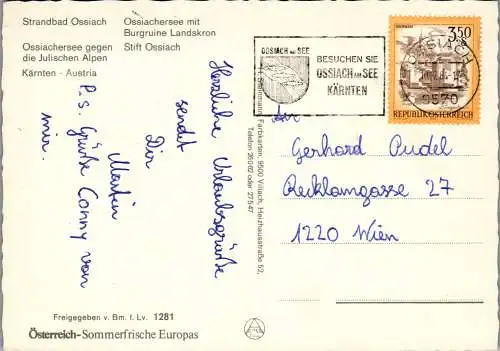 Strandbad Ossiach
Ossiachersee gegen
die Julischen Alpen
Kärnten - Austria
Ossiachersee mit
Burgruine Landskron
Stift Ossiach
OSSIACH AM SEE
BESUCHEN SIE
OSSIACH AM SEE
KÄRNTEN
OSSIACH
9570
3.50
REPUBLIK ÖSTERREICH
Herzliche Urlaubsgrüße
sendet
Dir
Martin
P.S. Grüße Conny von
mir.
Farbkarten, 9500 Villach, Heizhausstraße 52,
Telefon 26062 oder 27547
An
Gerhard Pudel
Recklamgasse 27
1220 Wien
Freigegeben v. Bm. f. Lv. 1281
Österreich-Sommerfrische Europas